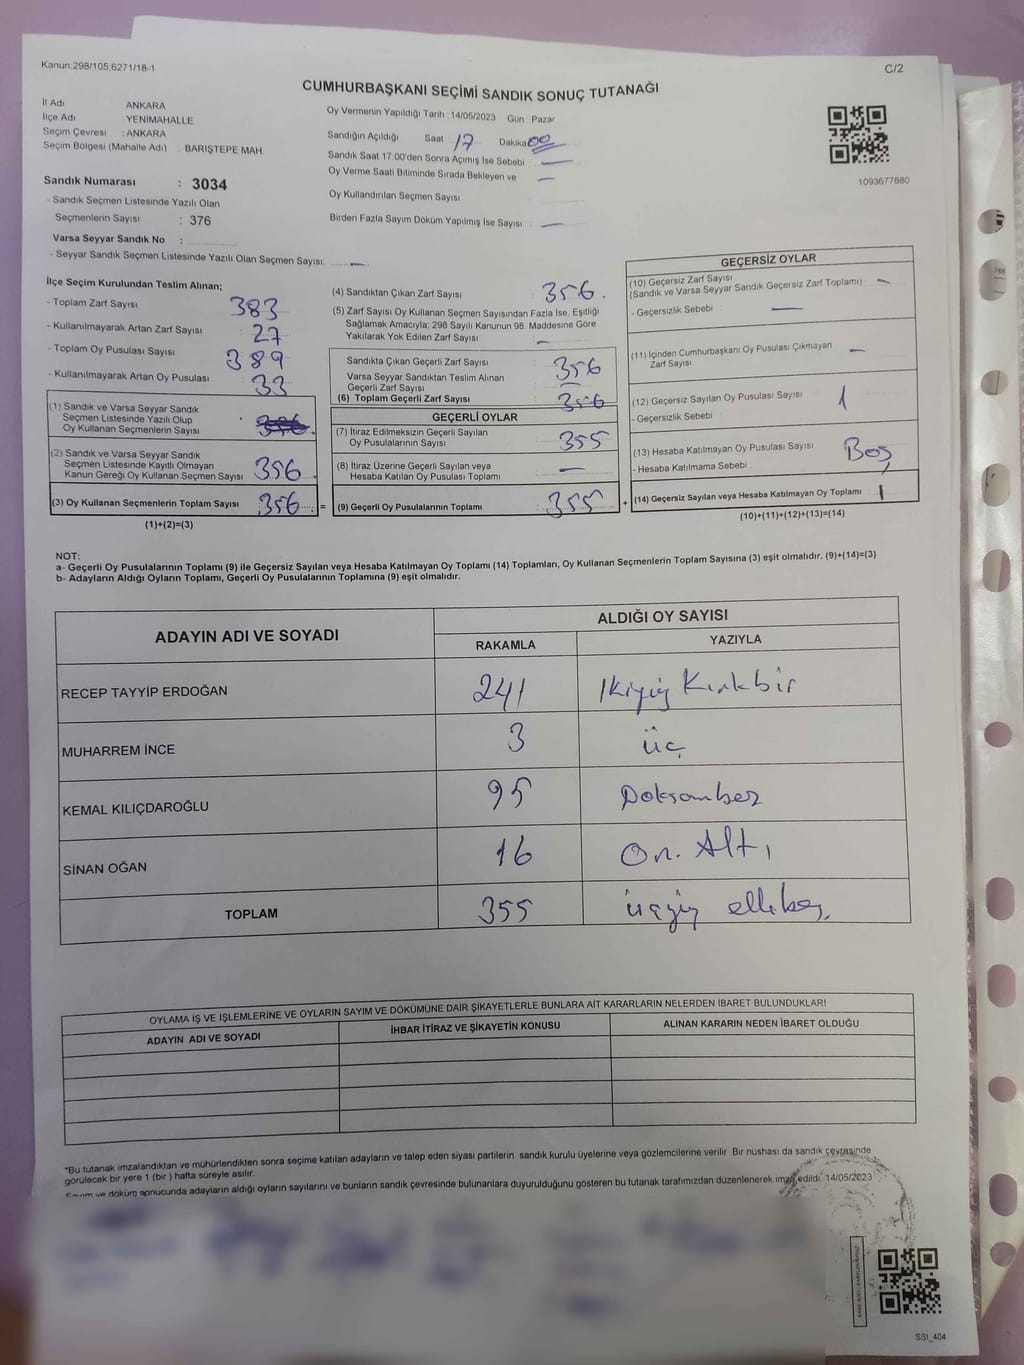 Kanun:298/105;6271/18-1
C/2
CUMHURBAŞKANI SEÇİMİ SANDIK SONUÇ TUTANAĞI
İl Adı : ANKARA
İlçe Adı : YENİMAHALLE
Seçim Çevresi : ANKARA
Seçim Bölgesi (Mahalle Adı) : BARIŞTEPE MAH.
Oy Vermenin Yapıldığı Tarih : 14/05/2023 Gün : Pazar
Sandığın Açıldığı Saat : 17 Dakika 00
Sandık Saat 17.00'den Sonra Açılmış İse Sebebi : —
Oy Verme Saati Bitiminde Sırada Bekleyen ve —
Oy Kullandırılan Seçmen Sayısı
Birden Fazla Sayım Döküm Yapılmış İse Sayısı : —
1093677880
Sandık Numarası : 3034
- Sandık Seçmen Listesinde Yazılı Olan
Seçmenlerin Sayısı : 376
Varsa Seyyar Sandık No :
- Seyyar Sandık Seçmen Listesinde Yazılı Olan Seçmen Sayısı: —
İlçe Seçim Kurulundan Teslim Alınan;
- Toplam Zarf Sayısı : 383
- Kullanılmayarak Artan Zarf Sayısı : 27
- Toplam Oy Pusulası Sayısı : 389
- Kullanılmayarak Artan Oy Pusulası : 33
(1) Sandık ve Varsa Seyyar Sandık
Seçmen Listesinde Yazılı Olup
Oy Kullanan Seçmenlerin Sayısı :
(2) Sandık ve Varsa Seyyar Sandık
Seçmen Listesinde Kayıtlı Olmayan
Kanun Gereği Oy Kullanan Seçmen Sayısı : 356
(3) Oy Kullanan Seçmenlerin Toplam Sayısı : 356 =
(1)+(2)=(3)
(4) Sandıktan Çıkan Zarf Sayısı : 356.
(5) Zarf Sayısı Oy Kullanan Seçmen Sayısından Fazla İse, Eşitliği
Sağlamak Amacıyla; 298 Sayılı Kanunun 98. Maddesine Göre
Yakılarak Yok Edilen Zarf Sayısı : —
Sandıkta Çıkan Geçerli Zarf Sayısı : 356
Varsa Seyyar Sandıktan Teslim Alınan
Geçerli Zarf Sayısı : —
(6) Toplam Geçerli Zarf Sayısı : 356
GEÇERLİ OYLAR
(7) İtiraz Edilmeksizin Geçerli Sayılan
Oy Pusulalarının Sayısı : 355
(8) İtiraz Üzerine Geçerli Sayılan veya
Hesaba Katılan Oy Pusulası Toplamı : —
(9) Geçerli Oy Pusulalarının Toplamı : 355 +
GEÇERSİZ OYLAR
(10) Geçersiz Zarf Sayısı —
(Sandık ve Varsa Seyyar Sandık Geçersiz Zarf Toplamı) :
- Geçersizlik Sebebi : —
(11) İçinden Cumhurbaşkanı Oy Pusulası Çıkmayan —
Zarf Sayısı
(12) Geçersiz Sayılan Oy Pusulası Sayısı : 1
- Geçersizlik Sebebi :
(13) Hesaba Katılmayan Oy Pusulası Sayısı : Boş
- Hesaba Katılmama Sebebi :
(14) Geçersiz Sayılan veya Hesaba Katılmayan Oy Toplamı : 1
(10)+(11)+(12)+(13)=(14)
NOT:
a- Geçerli Oy Pusulalarının Toplamı (9) ile Geçersiz Sayılan veya Hesaba Katılmayan Oy Toplamı (14) Toplamları, Oy Kullanan Seçmenlerin Toplam Sayısına (3) eşit olmalıdır. (9)+(14)=(3)
b- Adayların Aldığı Oyların Toplamı, Geçerli Oy Pusulalarının Toplamına (9) eşit olmalıdır.
ADAYIN ADI VE SOYADI
ALDIĞI OY SAYISI
RAKAMLA YAZIYLA
RECEP TAYYİP ERDOĞAN 241 İkiyüz Kırkbir
MUHARREM İNCE 3 üç
KEMAL KILIÇDAROĞLU 95 Doksanbeş
SİNAN OĞAN 16 On. Altı
TOPLAM 355 üçyüz ellibeş.
OYLAMA İŞ VE İŞLEMLERİNE VE OYLARIN SAYIM VE DÖKÜMÜNE DAİR ŞİKAYETLERLE BUNLARA AİT KARARLARIN NELERDEN İBARET BULUNDUKLARI
ADAYIN ADI VE SOYADI İHBAR İTİRAZ VE ŞİKAYETİN KONUSU ALINAN KARARIN NEDEN İBARET OLDUĞU
*Bu tutanak imzalandıktan ve mühürlendikten sonra seçime katılan adayların ve talep eden siyasi partilerin sandık kurulu üyelerine veya gözlemcilerine verilir. Bir nüshası da sandık çevresinde
görülecek bir yere 1 (bir) hafta süreyle asılır.
Sayım ve döküm sonucunda adayların aldığı oyların sayılarını ve bunların sandık çevresinde bulunanlara duyurulduğunu gösteren bu tutanak tarafımızdan düzenlenerek imza edildi. 14/05/2023
SSI_404